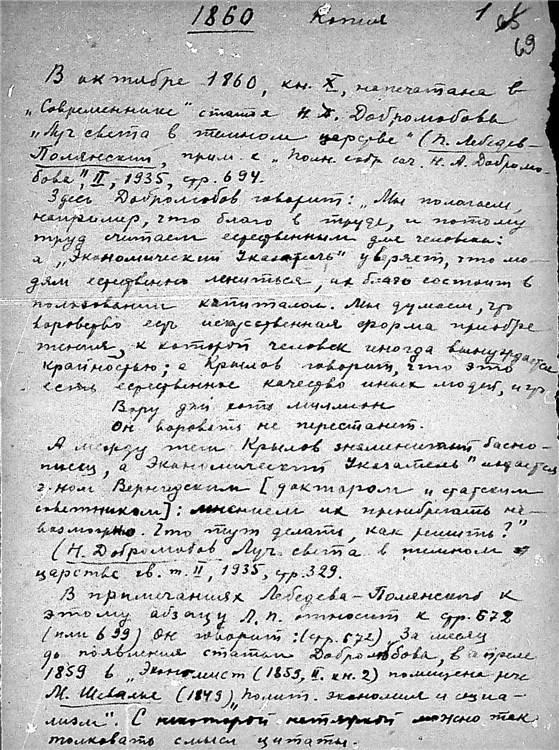 1860 Копия 1 65
69
В октябре 1860, кн. X, напечатана в
„Современнике" статья Н. А. Добролюбова
„Луч света в темном царстве" (П. Лебедев-
Полянский, прим. к „Полн. собр. соч. Н. А. Добролю-
бова", II, 1935, стр. 694.
Здесь Добролюбов говорит: „Мы полагаем,
например, что благо в труде, и потому
труд считаем естественным для человека:
а „Экономический Указатель" уверяет, что лю-
дям естественно лениться, их благо состоит в
пользовании капиталом. Мы думаем, что
воровство есть искусственная форма приобре
тения, к которой человек иногда вынуждается
крайностью; а Крылов говорит, что это
есть естественное качество иных людей, и что
Вору дай хоть миллион
Он воровать не перестанет.
А между тем Крылов знаменитый басно-
писец, а Экономический Указатель" издается
г-ном Вернадским [доктором „статским
советником]: мнением их пренебрегать не-
возможно. Что тут делать, как решить?"
(Н. Добролюбов Луч света в темном
царстве т. II, 1935, стр. 329.
В примечаниях Лебедева-Полянского к
этому абзацу Л. П. относит к стр. 672
(или 699) Он говорит: (стр. 672) За месяц
до появления статьи Добролюбова, в апреле
1859 в „Экономист (1859, II. кн. 2) помещена
М. Шевалье (1849) „Полит. экономия и социа-
лизм". С некоторой натяжкой можно так
толковать смысл цитаты.